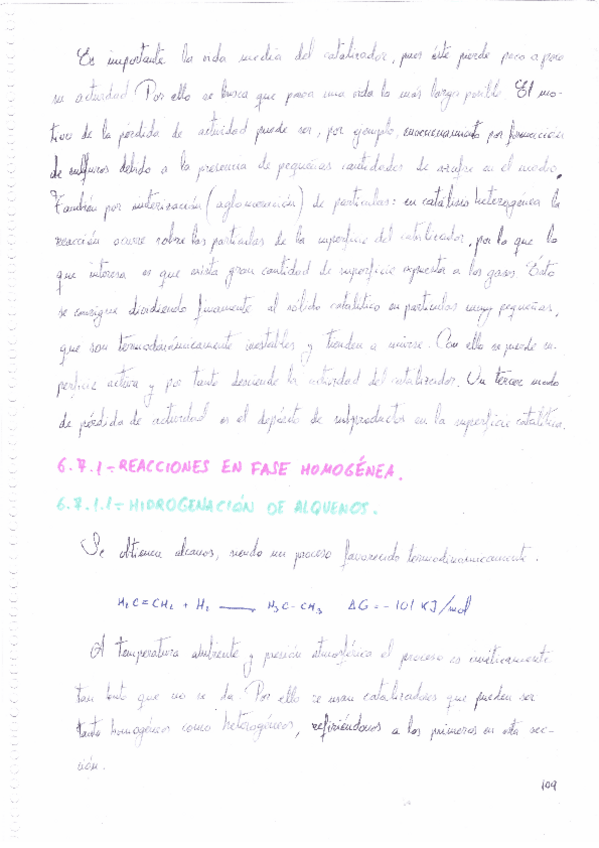 Es importante la vida media del catalizador, pues éste pierde poco a poco
su actividad. Por ello se busca que posea una vida lo más larga posible. El mo-
tivo de la pérdida de actividad puede ser, por ejemplo, envenenamiento por formación
de sulfuros debido a la presencia de pequeñas cantidades de azufre en el medio.
También por sinterización (aglomeración) de partículas: en catálisis heterogénea la
reacción ocurre sobre las partículas de la superficie del catalizador, por lo que lo
que interesa es que exista gran cantidad de superficie expuesta a los gases. Esto
se consigue dividiendo finamente al sólido catalítico en partículas muy pequeñas,
que son termodinámicamente inestables y tienden a unirse. Con ello se pierde su-
perficie activa y por tanto desciende la actividad del catalizador. Un tercer modo
de pérdida de actividad es el depósito de subproductos en la superficie catalítica.
6.7.1.- REACCIONES EN FASE HOMOGÉNEA.
6.7.1.1.- HIDROGENACIÓN DE ALQUENOS.
Se obtienen alcanos, siendo un proceso favorecido termodinámicamente.
H₂C=CH₂ + H₂ —— H₃C-CH₃ ΔG = -101 KJ/mol
A temperatura ambiente y presión atmosférica el proceso es cinéticamente
tan lento que no se da. Por ello se usan catalizadores que pueden ser
tanto homogéneos como heterogéneos, refiriéndonos a los primeros en esta sec-
ción.
109